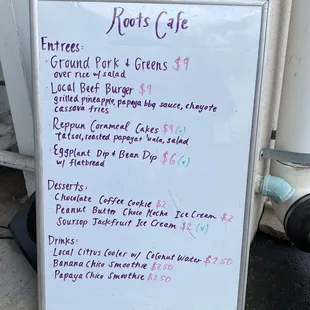 Roots Cafe
Entrees:
· Ground Pork & Greens $9
over rice w/ salad
· Local Beef Burger $9
grilled pineapple, papaya bbq sauce, chayote
cassava fries
· Reppun Cornmeal Cakes $9 (v)
tatsoi, roasted papaya, 'uala, salad
· Eggplant Dip & Bean Dip $6 (v)
w/ flatbread
Desserts:
· Chocolate Coffee Cookie $2
· Peanut Butter Choco Mocha Ice Cream $2
· Soursop Jackfruit Ice Cream $2 (v)
Drinks:
· Local Citrus Cooler w/ Coconut Water $2.50
· Banana Chico Smoothie $2.50
· Papaya Chico Smoothie $2.50